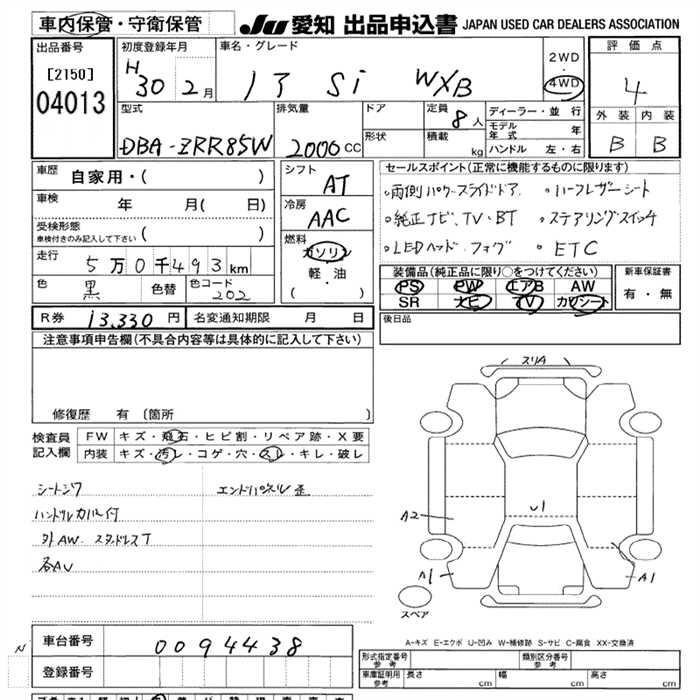 車内保管・守衛保管
JU 愛知 出品申込書 JAPAN USED CAR DEALERS ASSOCIATION
出品番号
[2150]
04013
初度登録年月
H 30 2月
車名・グレード
Si WXB
2WD
・
4WD
評価点
4
外装 内装
B B
型式
DBA-ZRR85W
排気量
2000 CC
ドア
形状
定員 8 人
積載 kg
ディーラー・並行
モデル年式 年
ハンドル 左・右
車歴 自家用・( )
車検 年 月( 日)
受検形態
車検付きのみ記入して下さい ( )
走行 5万0千493km
色 黒 色替 色コード 202
シフト AT
冷房 AAC
燃料
ガソリン
軽・油
( )
セールスポイント(正常に機能するものに限ります)
・両側パワースライドドア ・ハーフレザーシート
・純正ナビ、TV・BT ・ステアリングスイッチ
・LEDヘッド・フォグ ・ETC
装備品(純正品に限り○をつけてください)
PS PW エアB AW
SR ナビ TV カワシート
新車保証書
有・無
後日品
R券 13,330 円 名変通知期限 月 日
注意事項申告欄(不具合内容等は具体的に記入して下さい)
修復歴 有 〔箇所 〕
検査員記入欄
FW キズ・飛石・ヒビ割・リペア跡・X要
内装 キズ・汚レ・コゲ・穴・スレ・キレ・破レ
シートシワ エンドパネル歪
ハンドルカバー付
外AW. スタッドレスT
各AU
スリA
U1
A2
A1 A1
スペア
A-キズ E-エクボ U-凹み W-補修跡 S-サビ C-腐食 XX-交換済
N
車台番号 0094438
登録番号
形式指定番号
参考
類別区分番号
参考
車庫証明用
参考
長さ cm 幅 cm 高さ cm